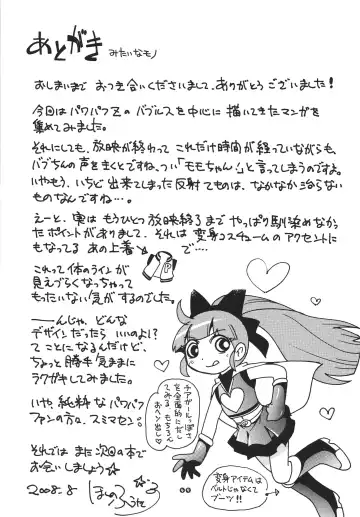 あとがき みたいなモノ
おしまいまで おつき合いくださいまして、ありがとう ございました!
今回は パワパフZの バブルスを 中心に 描いてきたマンガを
集めてみました。
それにしても、放映が終わって これだけ時間が 経っていながらも、
バブちんの声をきくとですね、つい「モモちゃん!」と言ってしまうのですよ。
いやもう、いちど出来てしまった反射てものは、なかなか治らない
ものなんですね…。
えーと、実は もうひとつ 放映終了まで やっぱり馴染めなか
ったポイントがありまして、それは 変身コスチュームの アクセントに
もなってる あの上着 で…。
これって 体のラインが
見えづらくなっちゃって
もったいない気が するのでした。
——んじゃ、どんな
デザインだったら いいのよ!?
てことに なるんだけど、
ちょっと 勝手気ままに
ラクガキしてみました。
いや、純粋な パワパフ
ファンの方々、スミマセン。
それでは また次回の本で
お会いしましょう☆
2008.8
チアガールっぽさ
を全面的にだし
てみる。もちろん
おヘソ出し♡
変身アイテムは
ベルトじゃなくて
ブーツ!!